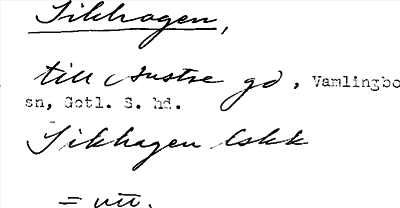 Sikhagen,
till Austre gd, Vamlingbo
sn, Gotl. S. hd.
Sikhagen lskk
= utt.